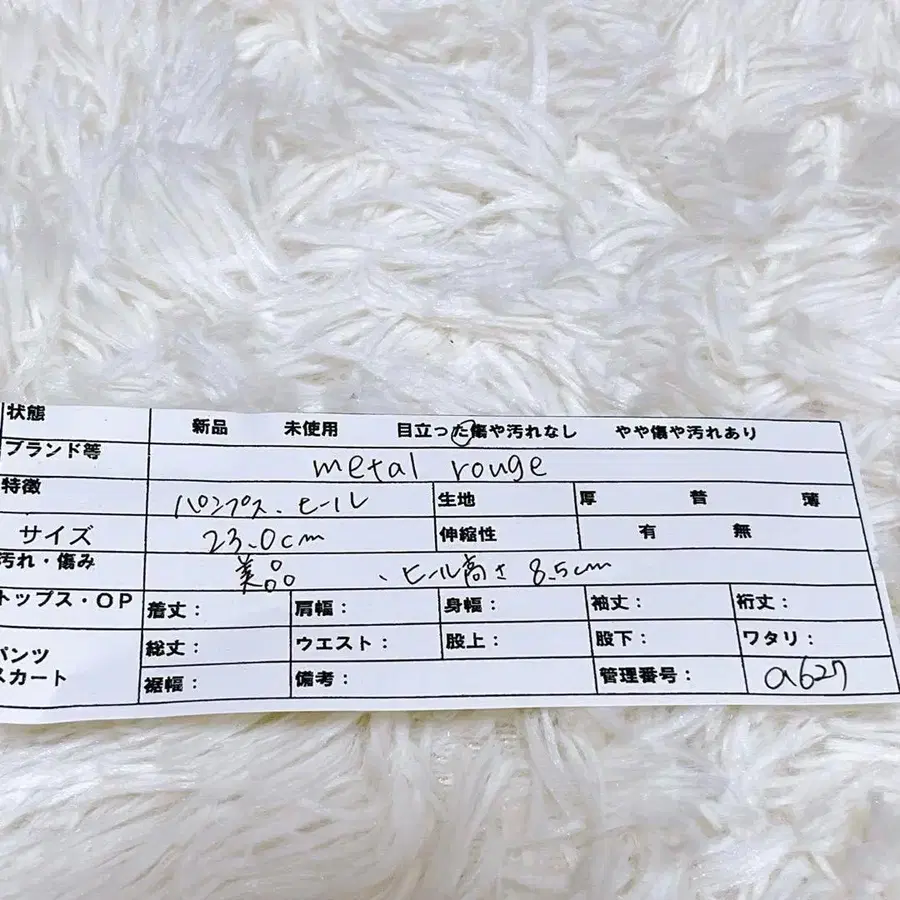 状態 新品 未使用 目立った傷や汚れなし やや傷や汚れあり
ブランド等 metal rouge
特徴 パンプス、ヒール 生地 厚 普 薄
サイズ 23.0cm 伸縮性 有 無
汚れ・傷み 美品 、ヒール高さ 8.5cm
トップス・OP 着丈： 肩幅： 身幅： 袖丈： 裄丈：
パンツ 総丈： ウエスト： 股上： 股下： ワタリ：
スカート 裾幅： 備考： 管理番号： a627